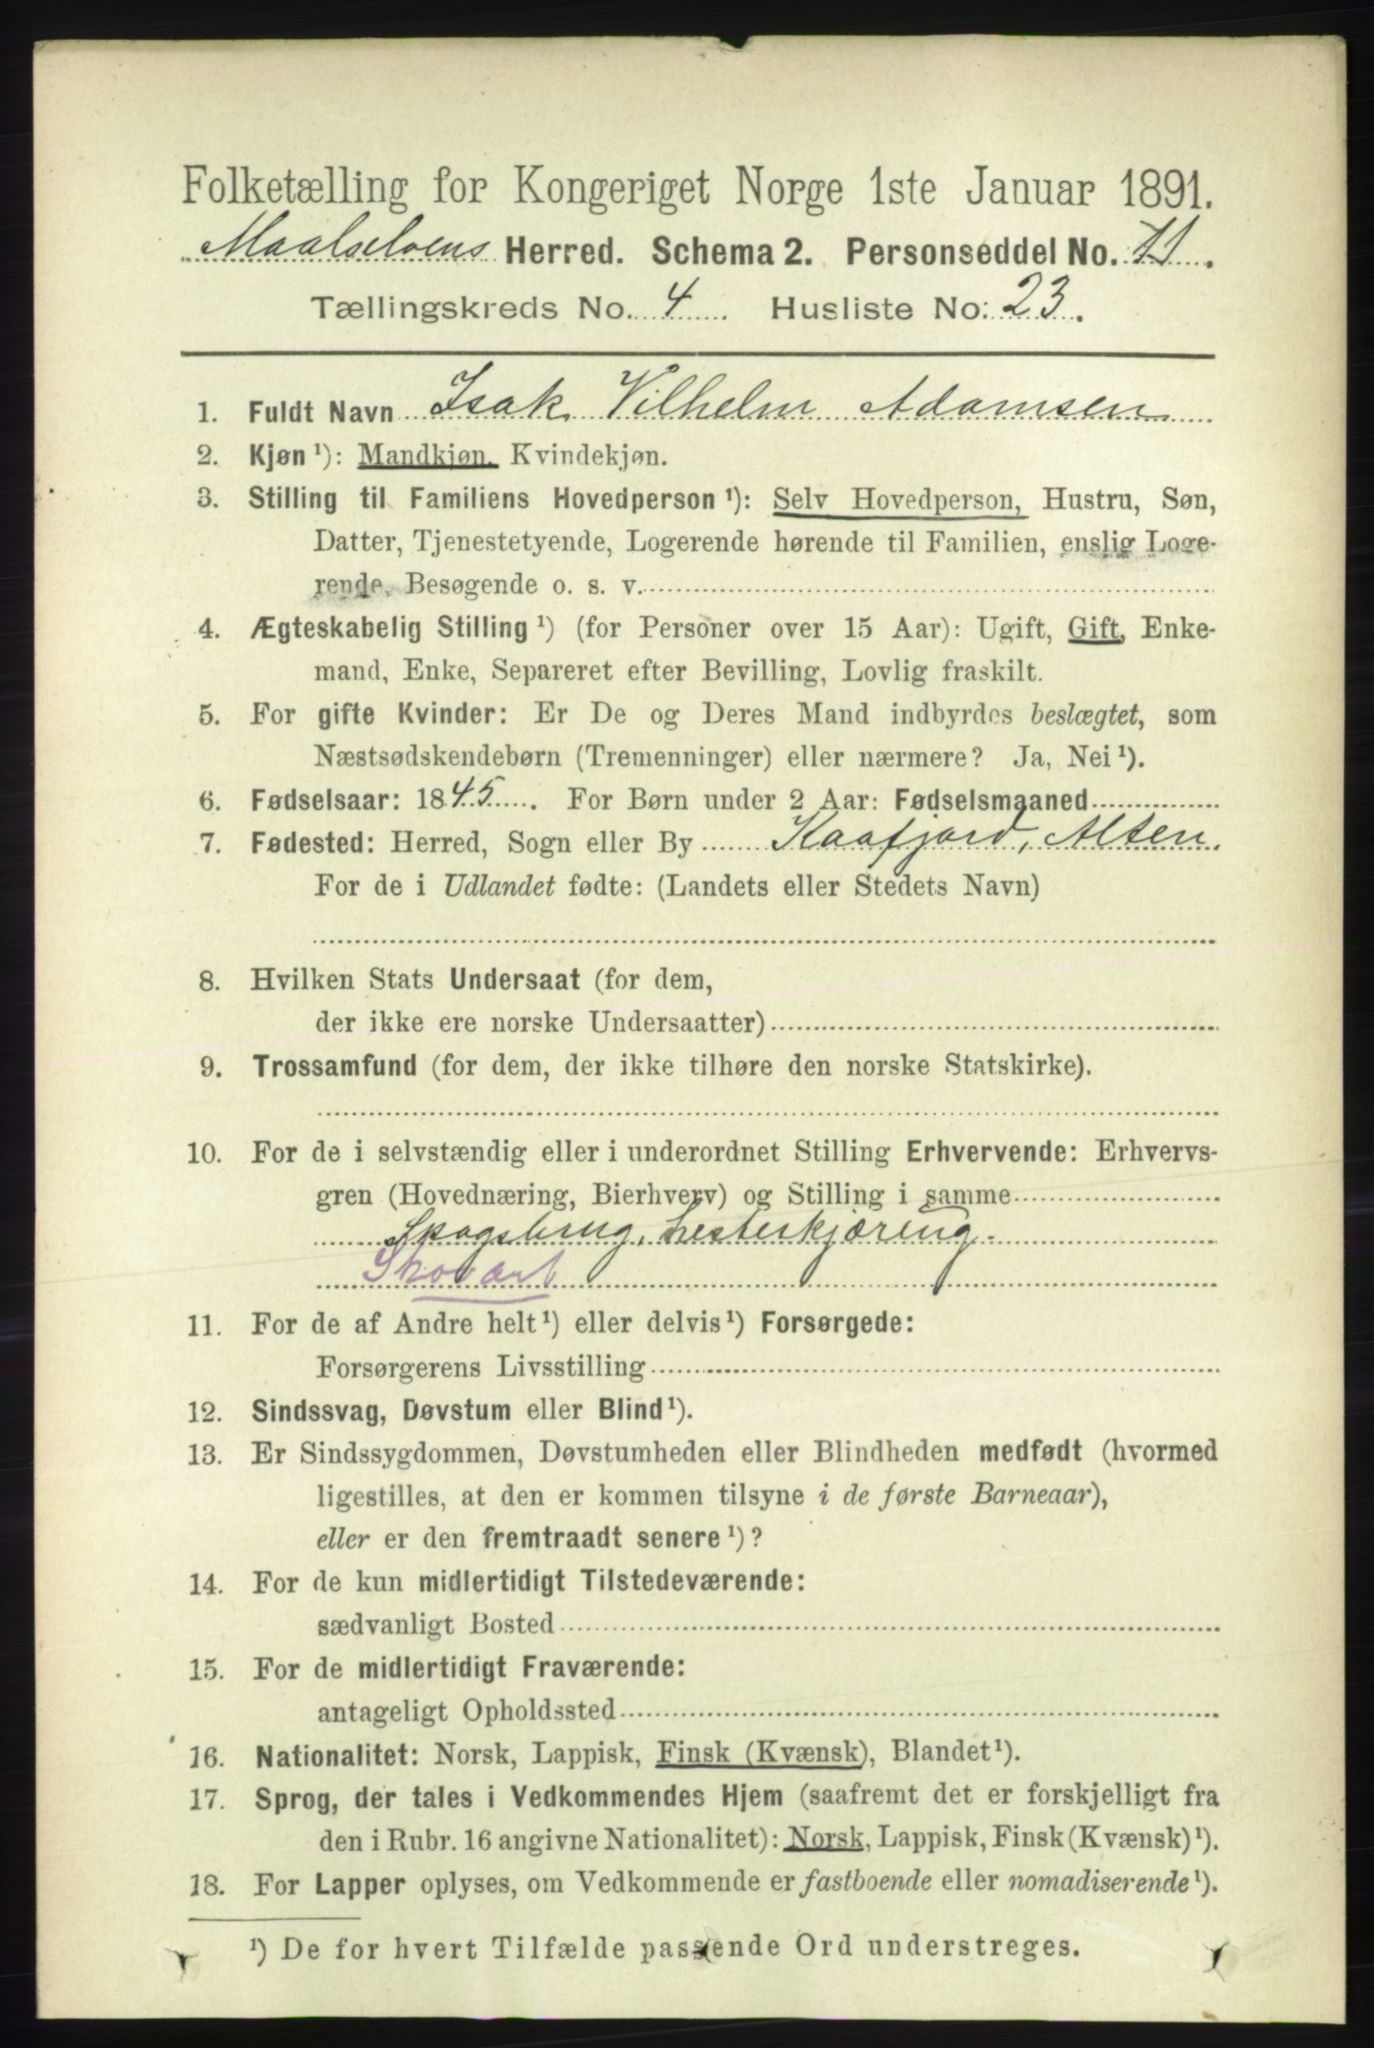 Folketælling for Kongeriget Norge 1ste Januar 1891.
Maalselvens Herred. Schema 2. Personseddel No. 11.
Tællingskreds No. 4. Husliste No: 23.
1. Fuldt Navn Isak Vilhelm Adamsen
2. Kjøn ¹): Mandkjøn. Kvindekjøn.
3. Stilling til Familiens Hovedperson ¹): Selv Hovedperson, Hustru, Søn,
Datter, Tjenestetyende, Logerende hørende til Familien, enslig Loge-
rende, Besøgende o. s. v.
4. Ægteskabelig Stilling ¹) (for Personer over 15 Aar): Ugift, Gift, Enke-
mand, Enke, Separeret efter Bevilling, Lovlig fraskilt.
5. For gifte Kvinder: Er De og Deres Mand indbyrdes beslægtet, som
Næstsødskendebørn (Tremenninger) eller nærmere? Ja, Nei ¹).
6. Fødselsaar: 1845. For Børn under 2 Aar: Fødselsmaaned
7. Fødested: Herred, Sogn eller By Kaafjord, Alten.
For de i Udlandet fødte: (Landets eller Stedets Navn)
8. Hvilken Stats Undersaat (for dem,
der ikke ere norske Undersaatter)
9. Trossamfund (for dem, der ikke tilhøre den norske Statskirke).
10. For de i selvstændig eller i underordnet Stilling Erhvervende: Erhvervs-
gren (Hovednæring, Bierhverv) og Stilling i samme
Skogsbrug, Lesterkjøring.
Skovarb
11. For de af Andre helt ¹) eller delvis ¹) Forsørgede:
Forsørgerens Livsstilling
12. Sindssvag, Døvstum eller Blind ¹).
13. Er Sindssygdommen, Døvstumheden eller Blindheden medfødt (hvormed
ligestilles, at den er kommen tilsyne i de første Barneaar),
eller er den fremtraadt senere ¹)?
14. For de kun midlertidigt Tilstedeværende:
sædvanligt Bosted
15. For de midlertidigt Fraværende:
antageligt Opholdssted
16. Nationalitet: Norsk, Lappisk, Finsk (Kvænsk), Blandet ¹).
17. Sprog, der tales i Vedkommendes Hjem (saafremt det er forskjelligt fra
den i Rubr. 16 angivne Nationalitet): Norsk, Lappisk, Finsk (Kvænsk) ¹).
18. For Lapper oplyses, om Vedkommende er fastboende eller nomadiserende ¹).
¹) De for hvert Tilfælde passende Ord understreges.